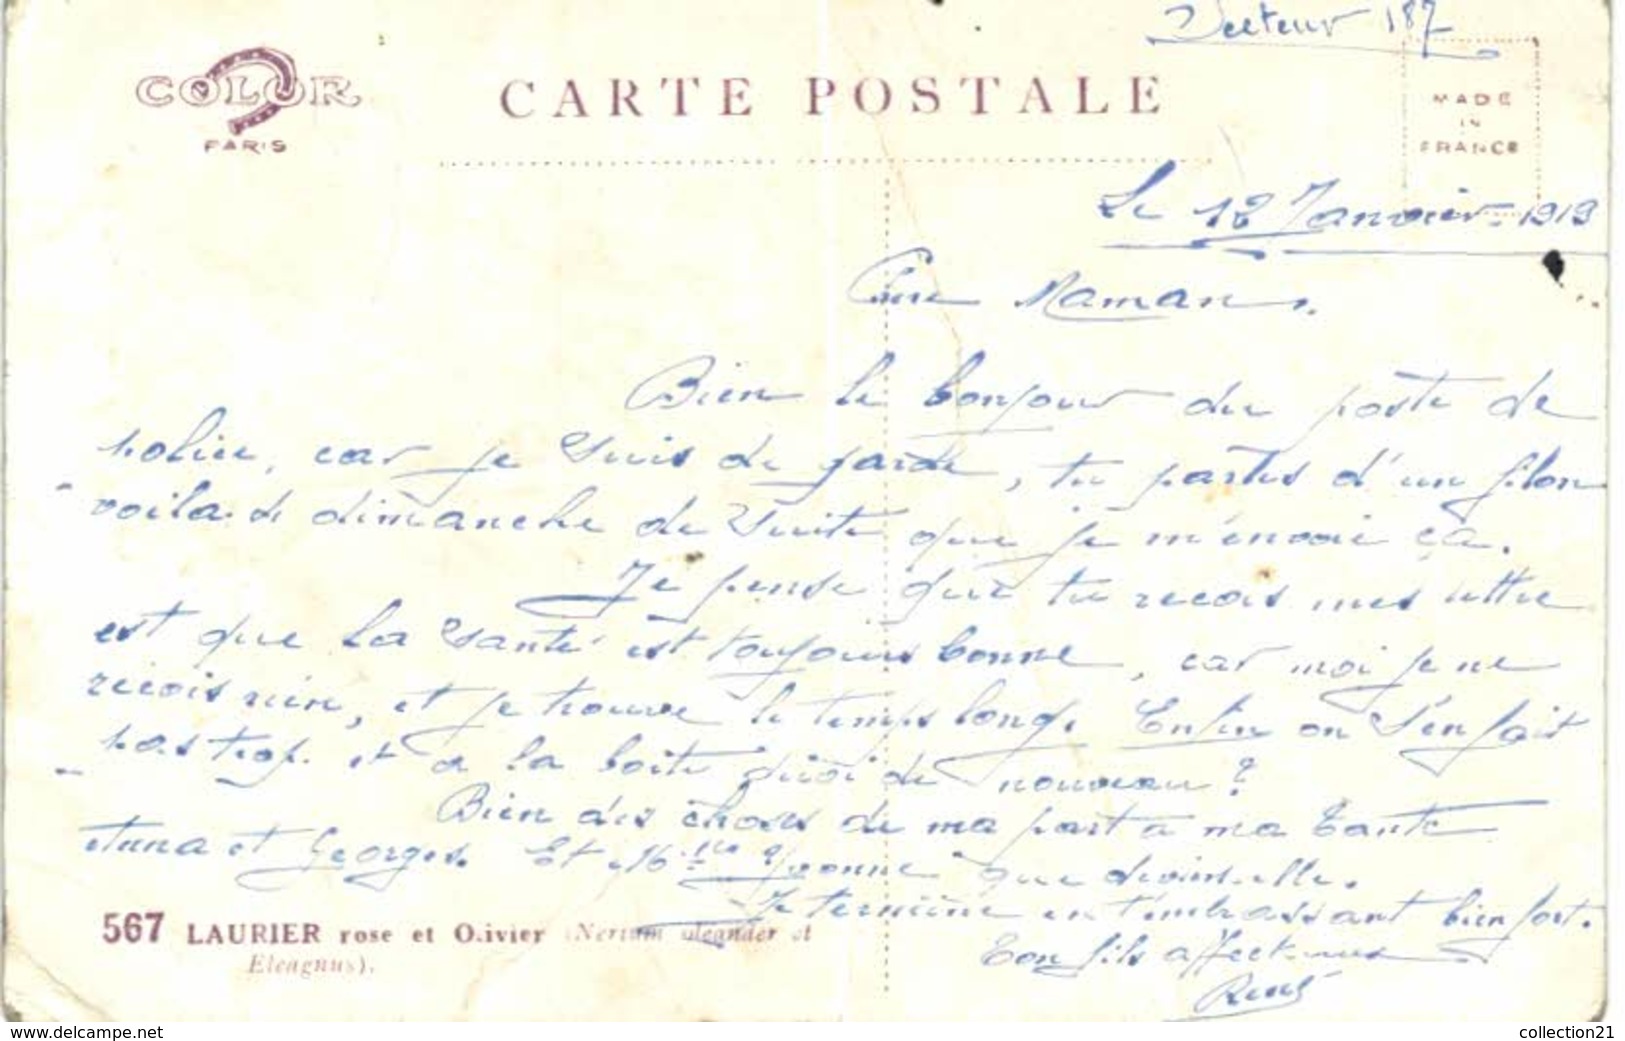 Secteur 187
COLOR
PARIS
CARTE POSTALE
MADE
IN
FRANCE
Le 12 Janvier 1919
Chère Maman.
Bien le bonjour du poste de
police, car je suis de garde, tu parles d'un filon
voila de dimanche de suite que je m'envoie ça.
Je pense que tu recois mes lettre
est que la santé est toujours bonne, car moi je ne
recois rien, et je trouve le temps long. Enfin on s'en fait
pas trop. et a la boite quoi de nouveau ?
Bien des choses de ma part a ma Tante
et Georges. Et Yvonne que devient-elle.
Je termine en t'embrassant bien fort.
Ton fils affectueux
René
567 LAURIER rose et Olivier (Nerium oleander et
Eleagnus).
www.delcampe.net
collection21